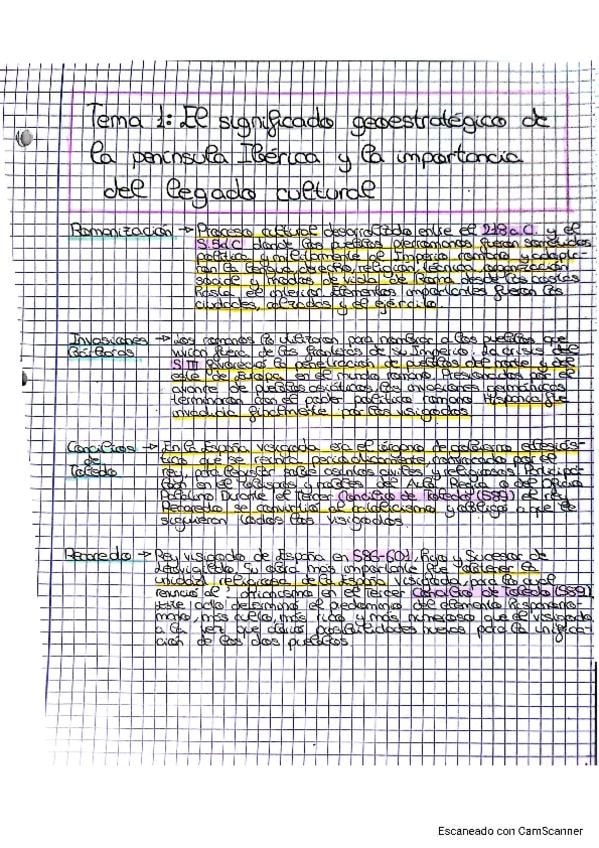 Tema 1: El significado geoestratégico de
la península Ibérica y la importancia
del legado cultural
Romanización → Proceso cultural desarrollado entre el 218 a.C. y el
S.5 d.C donde los pueblos prerromanos fueron sometidos
política y militarmente al Imperio romano y
la lengua, derecho, religión, técnica, organización
social y modos de vida de Roma desde las costas
hasta el interior. Elementos importantes fueron las
ciudades, calzadas y el ejército.
Invasiones → Los romanos lo utilizaron para nombrar a los pueblos que
bárbaras vivían fuera de las fronteras de su Imperio. La crisis del
S III favoreció la penetración de pueblos del norte y del
este de Europa en el mundo romano. Presionados por otro
pueblos las invasiones germánicas
terminaron con el poder político romano. Hispania fue
invadida finalmente por los visigodos.
Concilios → En la España visigoda era el órgano de gobierno
de que se reunía periódicamente, convocado por el
Toledo rey, para legislar sobre asuntos civiles y religiosos.
en el los obispos y nobles del Aula Regia o del Oficio
Palatino. Durante el Tercer Concilio de Toledo (589) el rey
Recaredo se convirtió al catolicismo y obligó a que le
siguieran todos los visigodos.
Recaredo → Rey visigodo de España en 586-601, hijo y sucesor de
Leovigildo. Su obra más importante fue obtener la
unidad religiosa de la España visigoda, para lo que
renunció al arrianismo en el Tercer Concilio de Toledo (589).
Este acto determinó el predominio del elemento hispanorro-
mano, más culto, más rico y más numeroso que el visigodo
a la vez que daba posibilidades nuevas para la unifica-
ción de los dos pueblos.
Escaneado con CamScanner